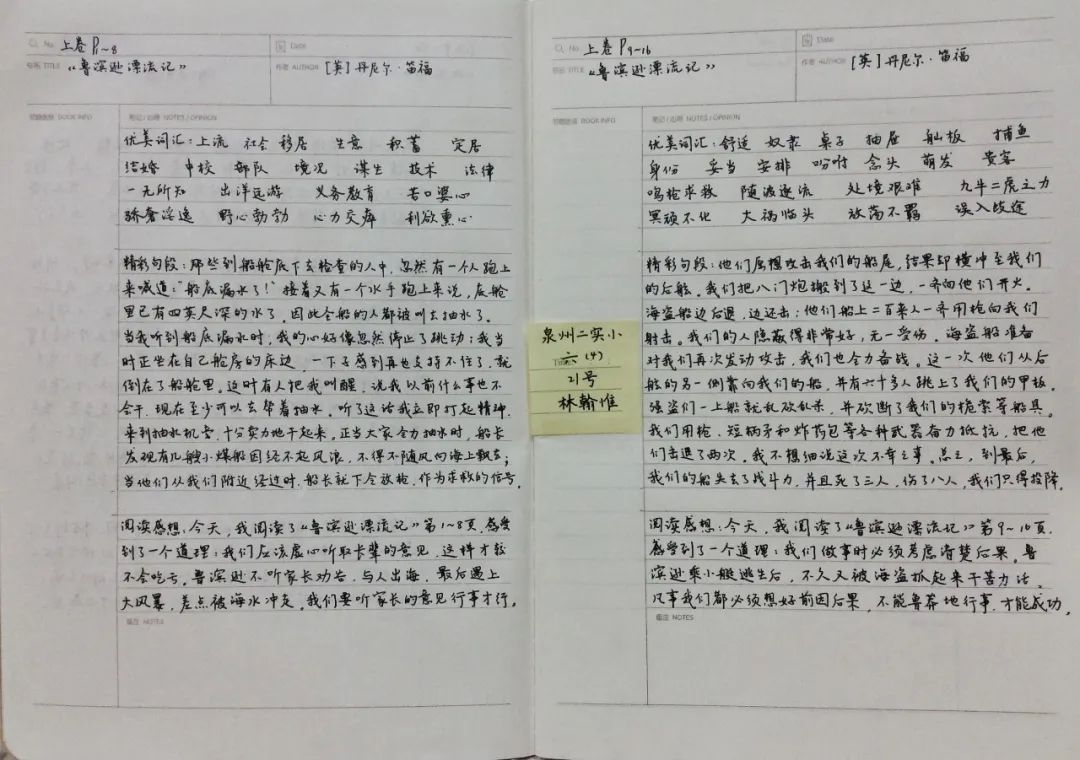 No. 上卷 P1~8
Date
书名 TITLE 《鲁滨逊漂流记》
作者 AUTHOR [英]丹尼尔·笛福
BOOK INFO
笔记/心得 NOTES / OPINION
优美词汇:上流 社会 移居 生意 积蓄 定居
结婚 中校 部队 境况 谋生 技术 法律
一无所知 出洋远游 义务教育 苦口婆心
骄奢淫逸 野心勃勃 心力交瘁 利欲熏心
精彩句段:那些到船舱底下去检查的人中,忽然有一个人跑上
来喊道:“船底漏水了!”接着又有一个水手跑上来说,底舱
里已有四英尺深的水了。因此全船的人都被叫去抽水了。
当我听到船底漏水时,我的心好像忽然停止了跳动;我当
时正坐在自己舱房的床边,一下子感到再也支持不住了,就
倒在了船舱里。这时有人把我叫醒,说我以前什么事也不
会干,现在至少可以去帮着抽水。听了这话我立即打起精神,
来到抽水机旁,十分卖力地干起来。正当大家全力抽水时,船长
发现有几艘小煤船因经不起风浪,不得不随风向海上飘去;
当他们从我们附近经过时,船长就下令放枪,作为求救的信号。
阅读感想:今天,我阅读了《鲁滨逊漂流记》第1~8页,感受
到了一个道理:我们应该虚心听取长辈的意见,这样才能
不会吃亏。鲁滨逊不听家长劝告,与人出海,最后遇上
大风暴,差点被海水冲走。我们要听家长的意见行事才行。
备注 NOTES
泉州二实小
六(4)
21号
林翰惟
No. 上卷 P9~16
Date
书名 TITLE 《鲁滨逊漂流记》
作者 AUTHOR [英]丹尼尔·笛福
BOOK INFO
笔记/心得 NOTES / OPINION
优美词汇:舒适 奴隶 桌子 抽屉 舢板 捕鱼
身份 妥当 安排 吩咐 念头 萌发 贵客
鸣枪求救 随波逐流 处境艰难 九牛二虎之力
冥顽不化 大祸临头 放荡不羁 误入歧途
精彩句段:他们原想攻击我们的船尾,结果却横冲至我们
的后舷。我们把八门炮搬到了这一边,一齐向他们开火。
海盗船边后退,边还击;他们船上二百来人一齐用枪向我们
射击。我们的人隐蔽得非常好,无一受伤。海盗船准备
对我们再次发动攻击,我们也全力备战。这一次他们从后
舷的另一侧靠向我们的船,并有六十多人跳上了我们的甲板。
强盗们一上船就乱砍乱杀,并砍断了我们的桅索等船具。
我们用枪、短柄矛和炸药包等各种武器奋力抵抗,把他
们击退了两次。我不想细说这次不幸之事。总之,到最后,
我们的船失去了战斗力,并且死了三人,伤了八人,我们只得投降。
阅读感想:今天,我阅读了《鲁滨逊漂流记》第9~16页,
感受到了一个道理:我们做事时必须考虑清楚后果。鲁
滨逊乘小艇逃生后,不久又被海盗抓起来干苦力活。
凡事我们都必须想好前因后果,不能鲁莽地行事,才能成功。
备注 NOTES